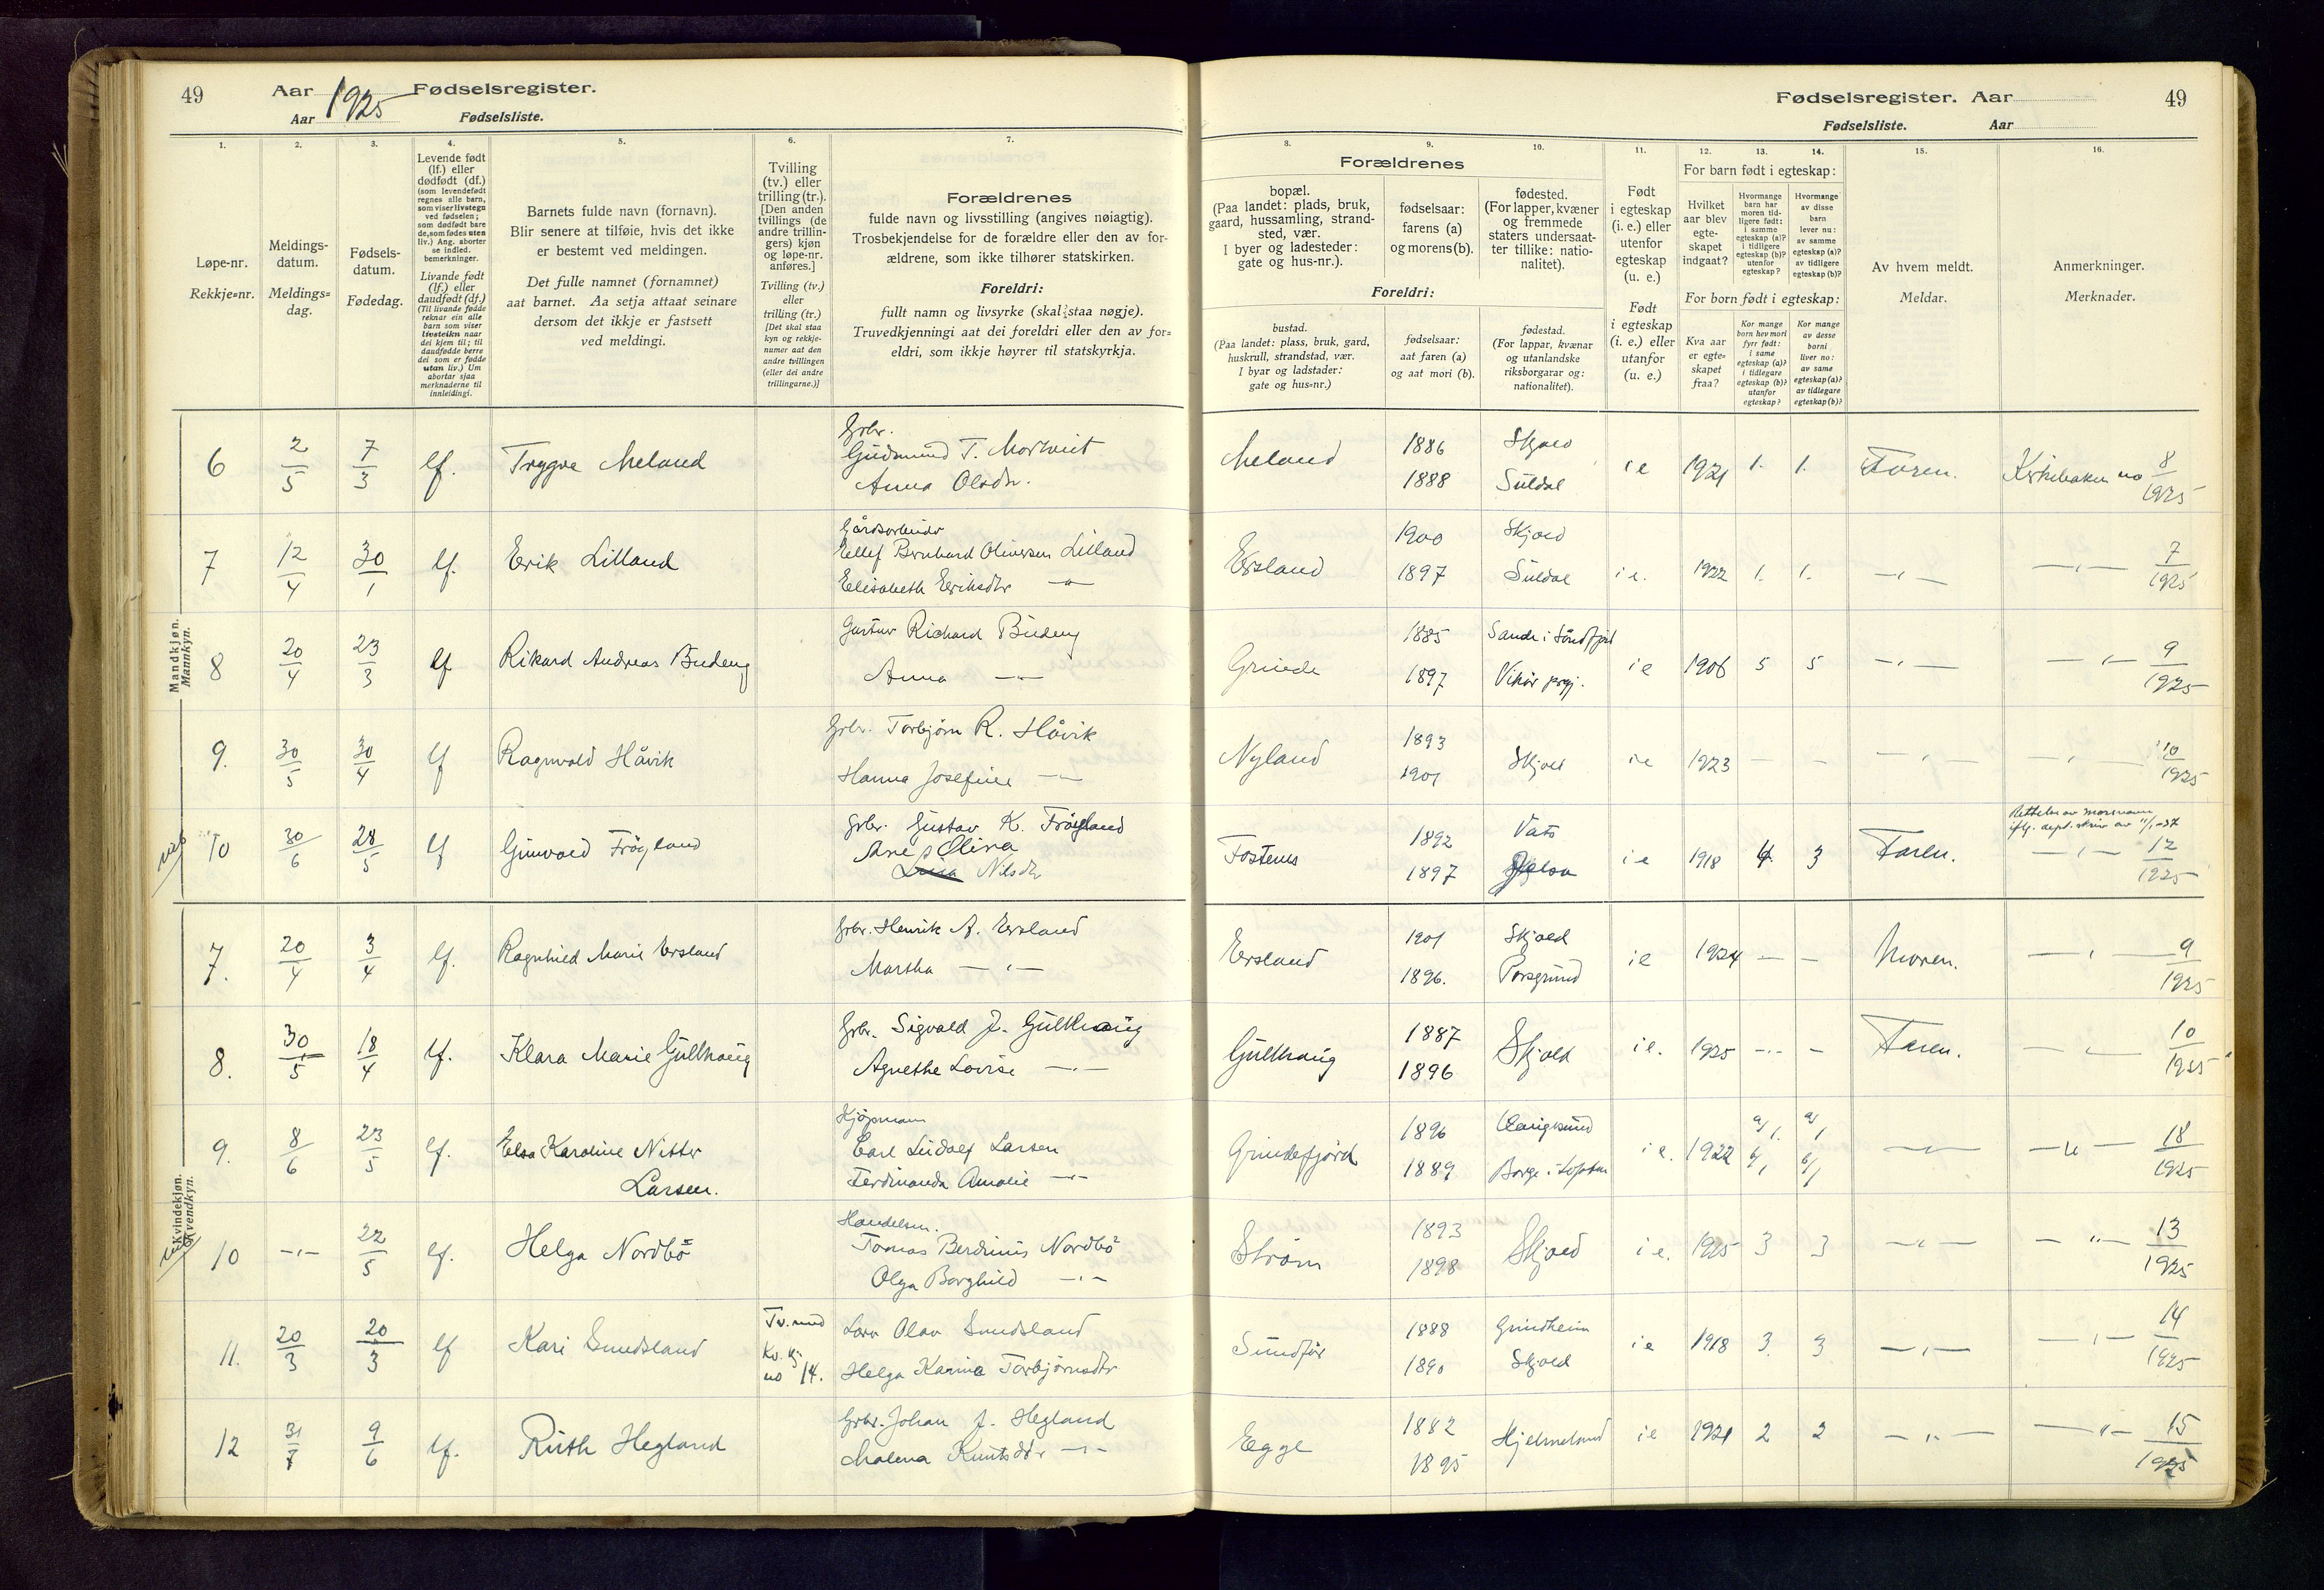 49
Aar 1925 Fødselsregister.
Aar Fødselsliste.
1.
Løpe-nr.
Rekkje=nr.
2.
Meldings-
datum.
Meldings=
dag.
3.
Fødsels-
datum.
Fødedag.
4.
Levende født
(lf.) eller
dødfødt (df.)
(som levendefødt
regnes alle barn,
som viser livstegn
ved fødselen;
som dødfødt bare
de, som fødes uten
liv.) Ang. aborter
se indled.
bemerkninger.
Livande født
(lf.) eller
daudfødt (df.)
(Til livande fødde
reknar ein alle
barn som viser
livsteikn naar
dei kjem til; til
daudfødde berre
dei som er fødde
utan liv.) Um
abortar sjaa
merknaderne til
innleidingi.
5.
Barnets fulde navn (fornavn).
Blir senere at tilføie, hvis det ikke
er bestemt ved meldingen.
Det fulle namnet (fornamnet)
aat barnet. Aa setja attaat seinare
dersom det ikkje er fastsett
ved meldingi.
6.
Tvilling
(tv.) eller
trilling (tr.).
[Den anden
tvillings (de
andre trillin-
gers) kjøn
og løpe-nr.
anføres.]
Tvilling (tv.)
eller
trilling (tr.)
[Det skal staa
kyn og rekkje-
numer aat den
andre tvillingen
(eller dei andre
trillingarne.)]
7.
Forældrenes
fulde navn og livsstilling (angives nøiagtig).
Trosbekjendelse for de forældre eller den av for-
ældrene, som ikke tilhører statskirken.
Foreldri:
fullt namn og livsyrke (skal staa nøgje).
Truvedkjenningi aat dei foreldri eller den av for=
eldri, som ikkje høyrer til statskyrkja.
Fødselsregister. Aar
49
Fødselsliste. Aar
8.
Forældrenes
bopæl.
(Paa landet: plads, bruk,
gaard, hussamling, strand-
sted, vær.
I byer og ladesteder:
gate og hus-nr.).
9.
fødselsaar:
farens (a)
og morens (b).
10.
fødested.
(For lapper, kvæner
og fremmede
staters undersaat-
ter tillike: natio-
nalitet).
Foreldri:
bustad.
(Paa landet: plass, bruk, gard,
huskrull, strandstad, vær.
I byar og ladstader:
gate og hus=nr.)
fødselsaar:
aat faren (a)
og aat mori (b).
fødestad.
(For lappar, kvænar
og utanlandske
riksborgarar og:
nationalitet).
11.
Født
i egteskap
(i. e.) eller
utenfor
egteskap
(u. e.)
Født
i egteskap
(i. e.) eller
utanfor
(u. e.)
12. 13. 14.
For barn født i egteskap:
Hvilket
aar blev
egte-
skapet
indgaat?
Hvormange
barn har
moren tid-
ligere født:
i samme
egteskap (a)?
i tidligere
egteskap (b)?
utenfor
egteskap?
Hvormange
av disse
barn
lever nu:
av samme
egteskap (a)?
av tidligere
egteskap (b)?
For born født i egteskap:
Kva aar
er egte=
skapet
fraa?
Kor mange
born hev mori
fyrr født:
i same
egteskap (a)?
i tidlegare
egteskap (b)?
utanfor
egteskap?
Kor mange
av desse
borni
liver no:
av same
egteskap (a)?
av tidlegare
egteskap (b)?
15.
Av hvem meldt.
Meldar.
16.
Anmerkninger.
Merknader.
Mandkjøn.
Mannkyn.
6 2/5 7/3 lf. Trygve Meland Grbr.
Gudmund T.
Anna Olsdr.
Meland 1886 1888 Skjold Suldal i e 1921 1. 1. Faren. Kirkeboken no 8/1925
7 12/4 30/1 lf. Erik Lilland Gårdsarbeider
Ellef Bernhard Oliversen Lilland
Elisabeth Eriksdtr —"—
Ersland 1900 1897 Skjold Suldal i e. 1922 1. 1. —"— —"— 7/1925
8 20/4 23/3 lf Rikard Andreas Budeng Gustav Richard Budeng
Anna —"—
Grinde 1885 1897 Sande i Söndfjord Vikör prgj. i e 1906 5 5 —"— —"— 9/1925
9. 30/5 30/4 lf Ragnvald Håvik Grbr. Torbjörn R. Håvik
Hanna Josefine —"—
Nyland 1893 1901 Skjold i e 1923 — — —"— —"— 10/1925
10 30/6 28/5 lf Gunvald Fröyland Grbr. Gustav K. Fröyland
Ane Olina
Nilsdtr
Fostenes 1892 1897 Vats Jelsa i e 1918 4. 3 Faren. Rettelse av morsnavn
iflg. dept. skriv av 11/1-37
—"— 12/1925
Kvindekjøn.
Kvendkyn.
7. 20/4 3/4 lf. Ragnhild Marie Ersland Grbr. Henrik A. Ersland
Martha —"—
Ersland 1901 1896. Skjold Porsgrund i e 1924 — — Moren. —"— 9/1925
8. 30/5 18/4 lf. Klara Marie Gullhaug Grbr. Sigvald J. Gullhaug
Agnethe Lovise —"—
Gullhaug 1887 1896 Skjold i e. 1925 —"— — Faren. —"— 10/1925
9. 8/6 23/5 lf. Elsa Karoline Nitter
Larsen.
Kjöpmann
Carl Ludolf Larsen
Ferdinanda Amalie —"—
Grindefjord 1896 1889 Haugesund Borge i Lofoten i e. 1922 a/1. b/1 a/1 b/1 —"— —"— 18/1925
10 —"— 22/5 lf. Helga Nordbö Handelsm.
Tomas Berdinius Nordbö
Olga Borghild —"—
Ström 1893 1898 Skjold i e. 1925 3 3 —"— —"— 13/1925
11. 20/3 20/3 lf Kari Smedsland Tv. med
Kv. kj.
no 14.
Lars Olav Smedsland
Helga Karina Torbjörnsdtr
Sundför 1888 1890 Grindheim Skjold i e 1918 3. 3 —"— —"— 14/1925
12 31/7 9/6 lf. Ruth Hegland Grbr. Johan J. Hegland
Malena Knutsdtr —"—
Egge 1882 1895 Hjelmeland i e 1921 2 2 —"— —"— 15/1925